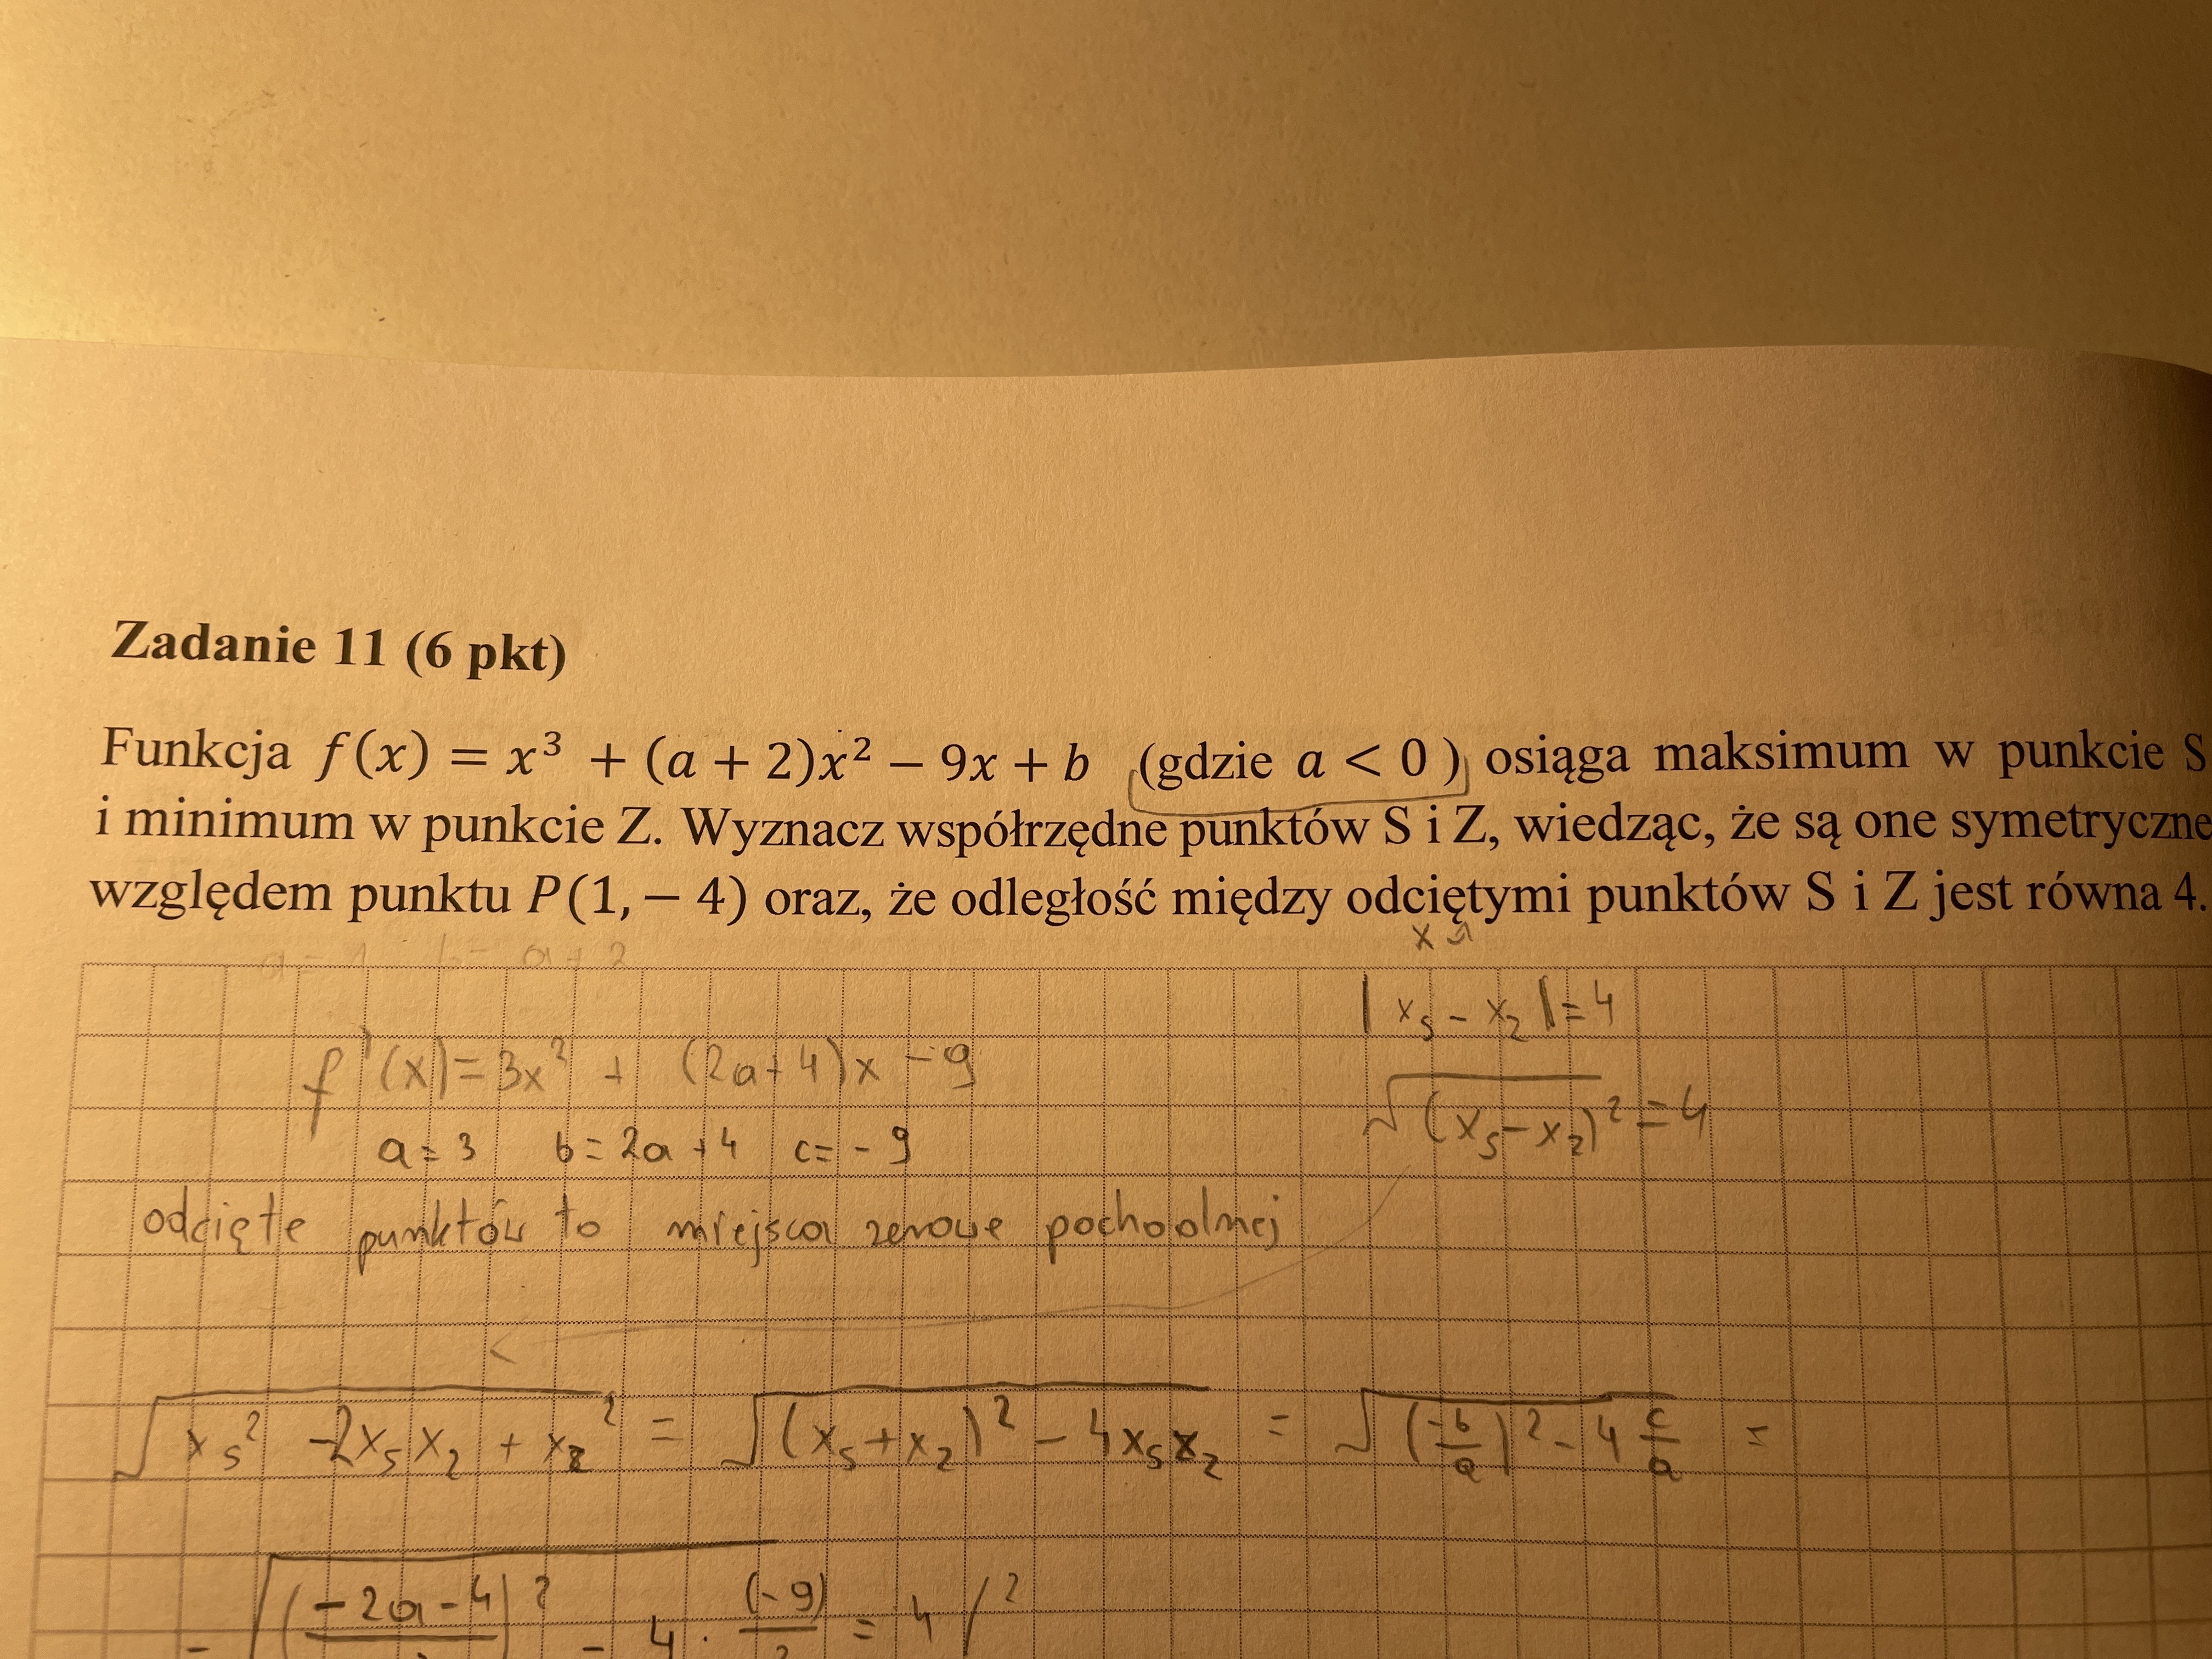 Zadanie 11 (6 pkt)
Funkcja f(x) = x³ + (a + 2)x² − 9x + b (gdzie a < 0 ) osiąga maksimum w punkcie S
i minimum w punkcie Z. Wyznacz współrzędne punktów S i Z, wiedząc, że są one symetryczne
względem punktu P(1, − 4) oraz, że odległość między odciętymi punktów S i Z jest równa 4.
x
|x_S - x_Z| = 4
f'(x) = 3x² + (2a+4)x - 9
√(x_S - x_Z)² = 4
a = 3 b = 2a + 4 c = - 9
odcięte punktów to miejsca zerowe pochodnej
√x_S² - 2x_S x_Z + x_Z² = √(x_S + x_Z)² - 4x_S x_Z = √(-b/a)² - 4 c/a =
= √(-2a-4)² - 4 · (-9) = 4 /²